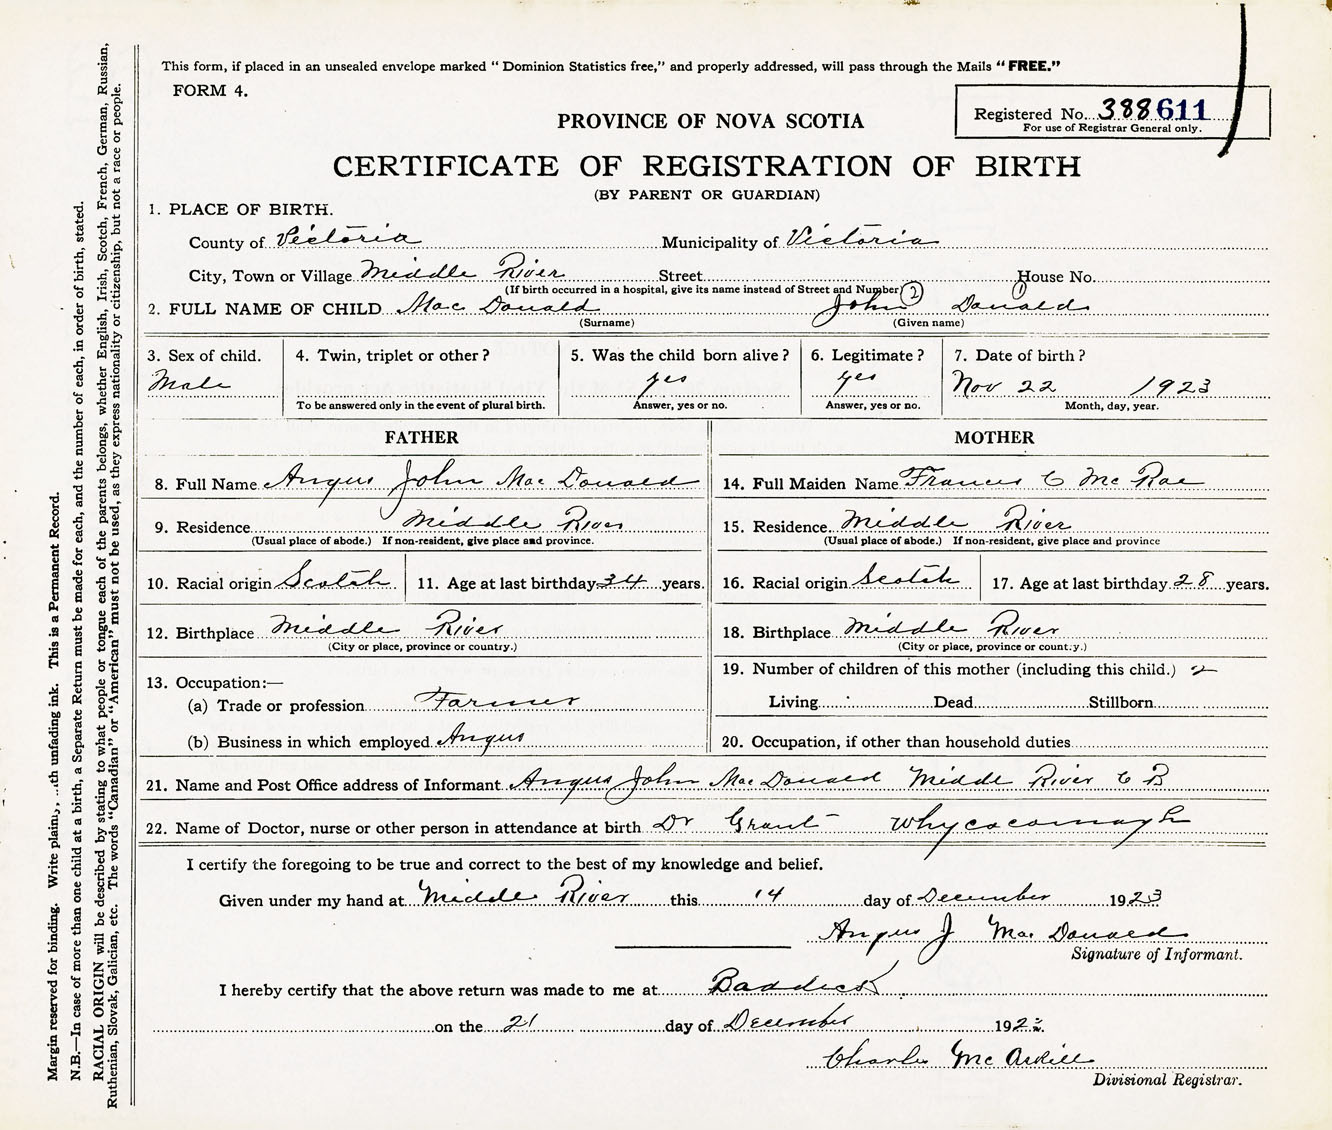 This form, if placed in an unsealed envelope marked " Dominion Statistics free," and properly addressed, will pass through the Mails " FREE."
FORM 4.
Registered No. 388611
For use of Registrar General only.
PROVINCE OF NOVA SCOTIA
CERTIFICATE OF REGISTRATION OF BIRTH
(BY PARENT OR GUARDIAN)
1. PLACE OF BIRTH.
County of Victoria Municipality of Victoria
City, Town or Village Middle River Street House No.
(If birth occurred in a hospital, give its name instead of Street and Number) 2 1
2. FULL NAME OF CHILD Mac Donald John Donald
(Surname) (Given name)
3. Sex of child. 4. Twin, triplet or other ? 5. Was the child born alive ? 6. Legitimate ? 7. Date of birth ?
Male yes yes Nov 22 1923
To be answered only in the event of plural birth. Answer, yes or no. Answer, yes or no. Month, day, year.
FATHER MOTHER
8. Full Name Angus John Mac Donald 14. Full Maiden Name Frances C Mc Rae
9. Residence Middle River 15. Residence Middle River
(Usual place of abode.) If non-resident, give place and province. (Usual place of abode.) If non-resident, give place and province
10. Racial origin Scotch 11. Age at last birthday 34 years. 16. Racial origin Scotch 17. Age at last birthday 28 years.
12. Birthplace Middle River 18. Birthplace Middle River
(City or place, province or country.) (City or place, province or country.)
13. Occupation:— 19. Number of children of this mother (including this child.) 2
(a) Trade or profession Farmer Living Dead Stillborn
(b) Business in which employed Angus 20. Occupation, if other than household duties
21. Name and Post Office address of Informant Angus John Mac Donald Middl River C B
22. Name of Doctor, nurse or other person in attendance at birth Dr Grant Whycocomagh
I certify the foregoing to be true and correct to the best of my knowledge and belief.
Given under my hand at Middle River this 14 day of December 1923
Angus J Mac Donald
Signature of Informant.
I hereby certify that the above return was made to me at Baddeck
on the 21 day of December 192
Charles Mc
Divisional Registrar.
Margin reserved for binding. Write plainly, with unfading ink. This is a Permanent Record.
N.B.—In case of more than one child at a birth, a Separate Return must be made for each, and the number of each, in order of birth, stated.
RACIAL ORIGIN will be described by stating to what people or tongue each of the parents belongs, whether English, Irish, Scotch, French, German, Russian,
Ruthenian, Slovak, Galician, etc. The words "Canadian" or "American" must not be used, as they express nationality or citizenship, but not a race or people.